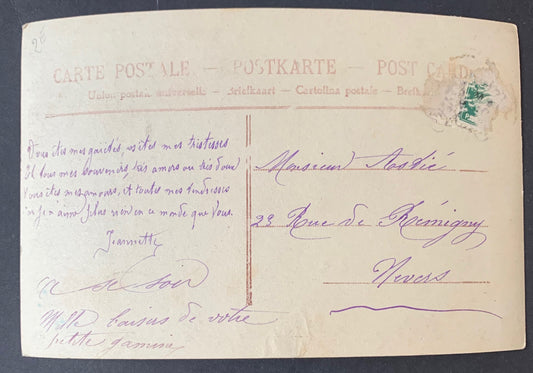 28
CARTE POSTALE — POSTKARTE — POST CARD
Union postale universelle — Briefkaart — Cartolina postale —
Vous êtes mes gaietés, vous êtes mes tristesses
Et tous mes souvenirs très amers ou très doux
Vous êtes mes amours, et toutes mes tendresses
Je n'aime plus rien en ce monde que Vous.
Jeannette
a ce soir
Mille baisers de votre
petite gamine
Monsieur
23 Rue de Rémigny
Nevers